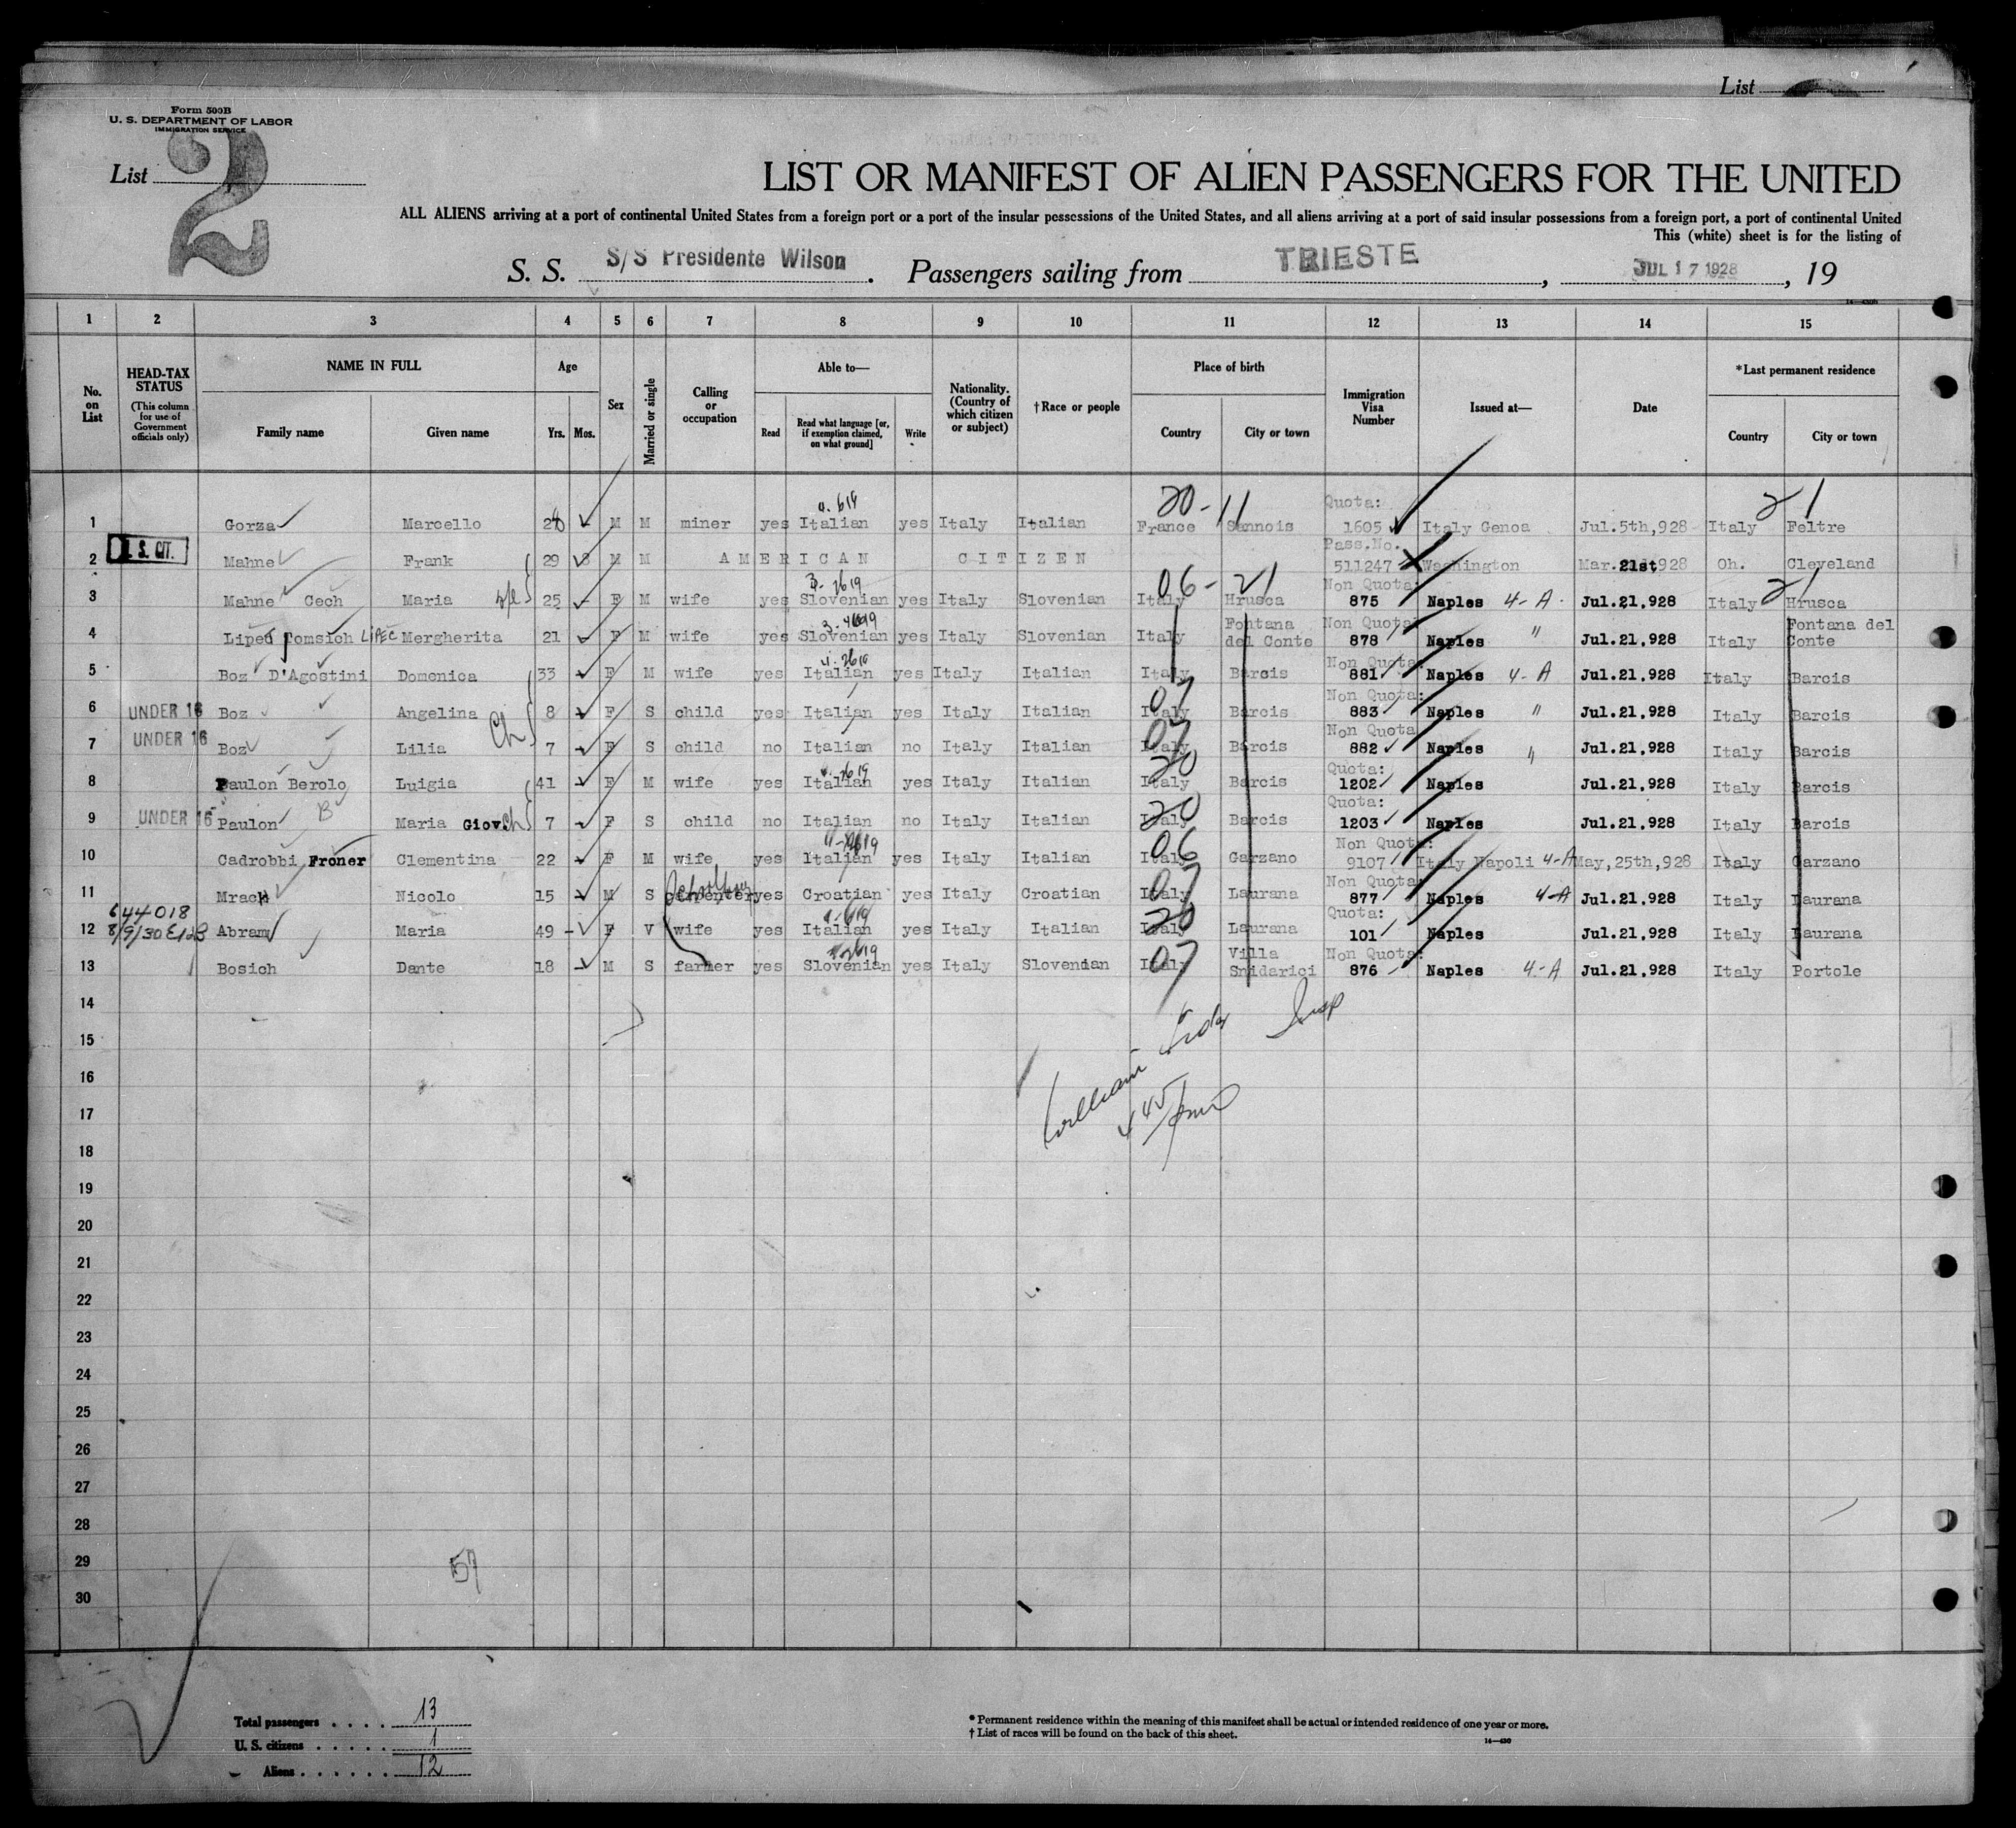 List
Form 500B
U. S. DEPARTMENT OF LABOR
IMMIGRATION SERVICE
List 2
LIST OR MANIFEST OF ALIEN PASSENGERS FOR THE UNITED
ALL ALIENS arriving at a port of continental United States from a foreign port or a port of the insular possessions of the United States, and all aliens arriving at a port of said insular possessions from a foreign port, a port of continental United
This (white) sheet is for the listing of
S. S. S/S Presidente Wilson. Passengers sailing from TRIESTE, JUL 17 1928, 19
1 2 3 4 5 6 7 8 9 10 11 12 13 14 15
No. on List
HEAD-TAX STATUS
(This column for use of Government officials only)
NAME IN FULL
Family name Given name
Age
Yrs. Mos.
Sex
Married or single
Calling or occupation
Able to—
Read Read what language [or, if exemption claimed, on what ground] Write
Nationality. (Country of which citizen or subject)
†Race or people
Place of birth
Country City or town
Immigration Visa Number
Issued at—
Date
*Last permanent residence
Country City or town
20-11 Quota: 21
1 Gorza Marcello 28 - M M miner yes Italian yes Italy Italian France Sannois 1605 Italy Genoa Jul.5th,928 Italy Feltre
Pass.No.
2 S. CIT. Mahne Frank 29 8 M M AMERICAN CITIZEN 511247 Washington Mar.21st928 Oh. Cleveland
06-21 Non Quota: 21
3 Mahne Cech Maria 25 - F M wife yes Slovenian yes Italy Slovenian Italy Hrusca 875 Naples 4-A. Jul.21.928 Italy Hrusca
Fontana Non Quota: Fontana del
4 Tomsich LIPEC Mergherita 21 F M wife yes Slovenian yes Italy Slovenian Italy del Conte 878 Naples " Jul.21.928 Italy Conte
Non Quota:
5 Boz D'Agostini Domenica 33 - F M wife yes Italian yes Italy Italian Italy Barcis 881 Naples 4-A Jul.21.928 Italy Barcis
07 Non Quota:
6 UNDER 16 Boz Angelina Ch 8 - F S child yes Italian yes Italy Italian Italy Barcis 883 Naples " Jul.21.928 Italy Barcis
07 Non Quota
7 UNDER 16 Boz Lilia 7 - F S child no Italian no Italy Italian Italy Barcis 882 Naples " Jul.21.928 Italy Barcis
20 Quota:
8 Paulon Berolo Luigia 41 - F M wife yes Italian yes Italy Italian Italy Barcis 1202 Naples Jul.21.928 Italy Barcis
20 Quota:
9 UNDER 16 Paulon B Maria Giov. Ch 7 - F S child no Italian no Italy Italian Italy Barcis 1203 Naples Jul.21.928 Italy Barcis
06 Non Quota:
10 Cadrobbi Froner Clementina 22 - F M wife yes Italian yes Italy Italian Italy Garzano 9107 Italy Napoli 4-A May,25th,928 Italy Garzano
07 Non Quota
11 Mrach Nicolo 15 - M S yes Croatian yes Italy Croatian Italy Laurana 877 Naples 4-A Jul.21.928 Italy Laurana
644018
20 Quota:
12 Abram Maria 49 - F V wife yes Italian yes Italy Italian Italy Laurana 101 Naples Jul.21.928 Italy Laurana
07 Villa Non Quota:
13 Bosich Dante 18 - M S farmer yes Slovenian yes Italy Slovenian Italy Snidarici 876 Naples 4-A Jul.21.928 Italy Portole
14
15
16
17
18
19
20
21
22
23
24
25
26
27
28
29
30
57
Total passengers . . . . 13
U. S. citizens . . . . . 1
Aliens . . . . . . 12
* Permanent residence within the meaning of this manifest shall be actual or intended residence of one year or more.
† List of races will be found on the back of this sheet.
14—430